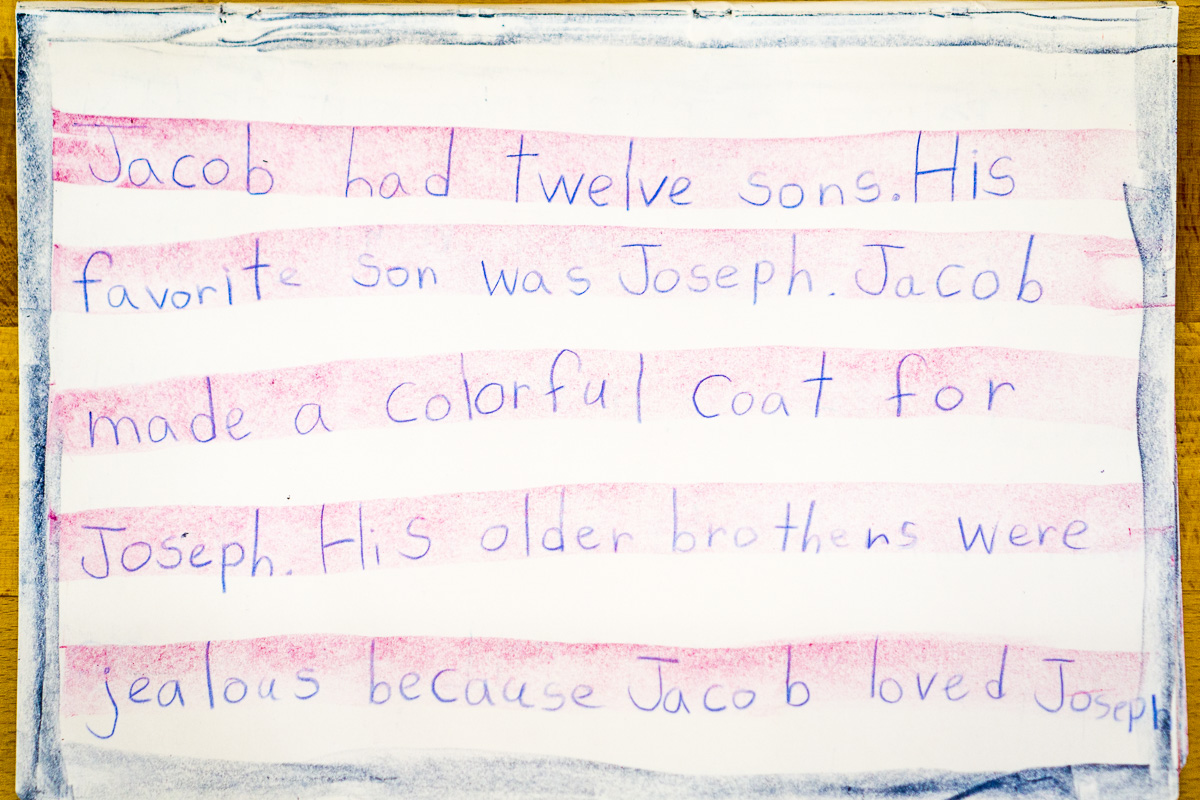 Jacob had twelve sons. His
favorite son was Joseph. Jacob
made a colorful coat for
Joseph. His older brothers were
jealous because Jacob loved Joseph